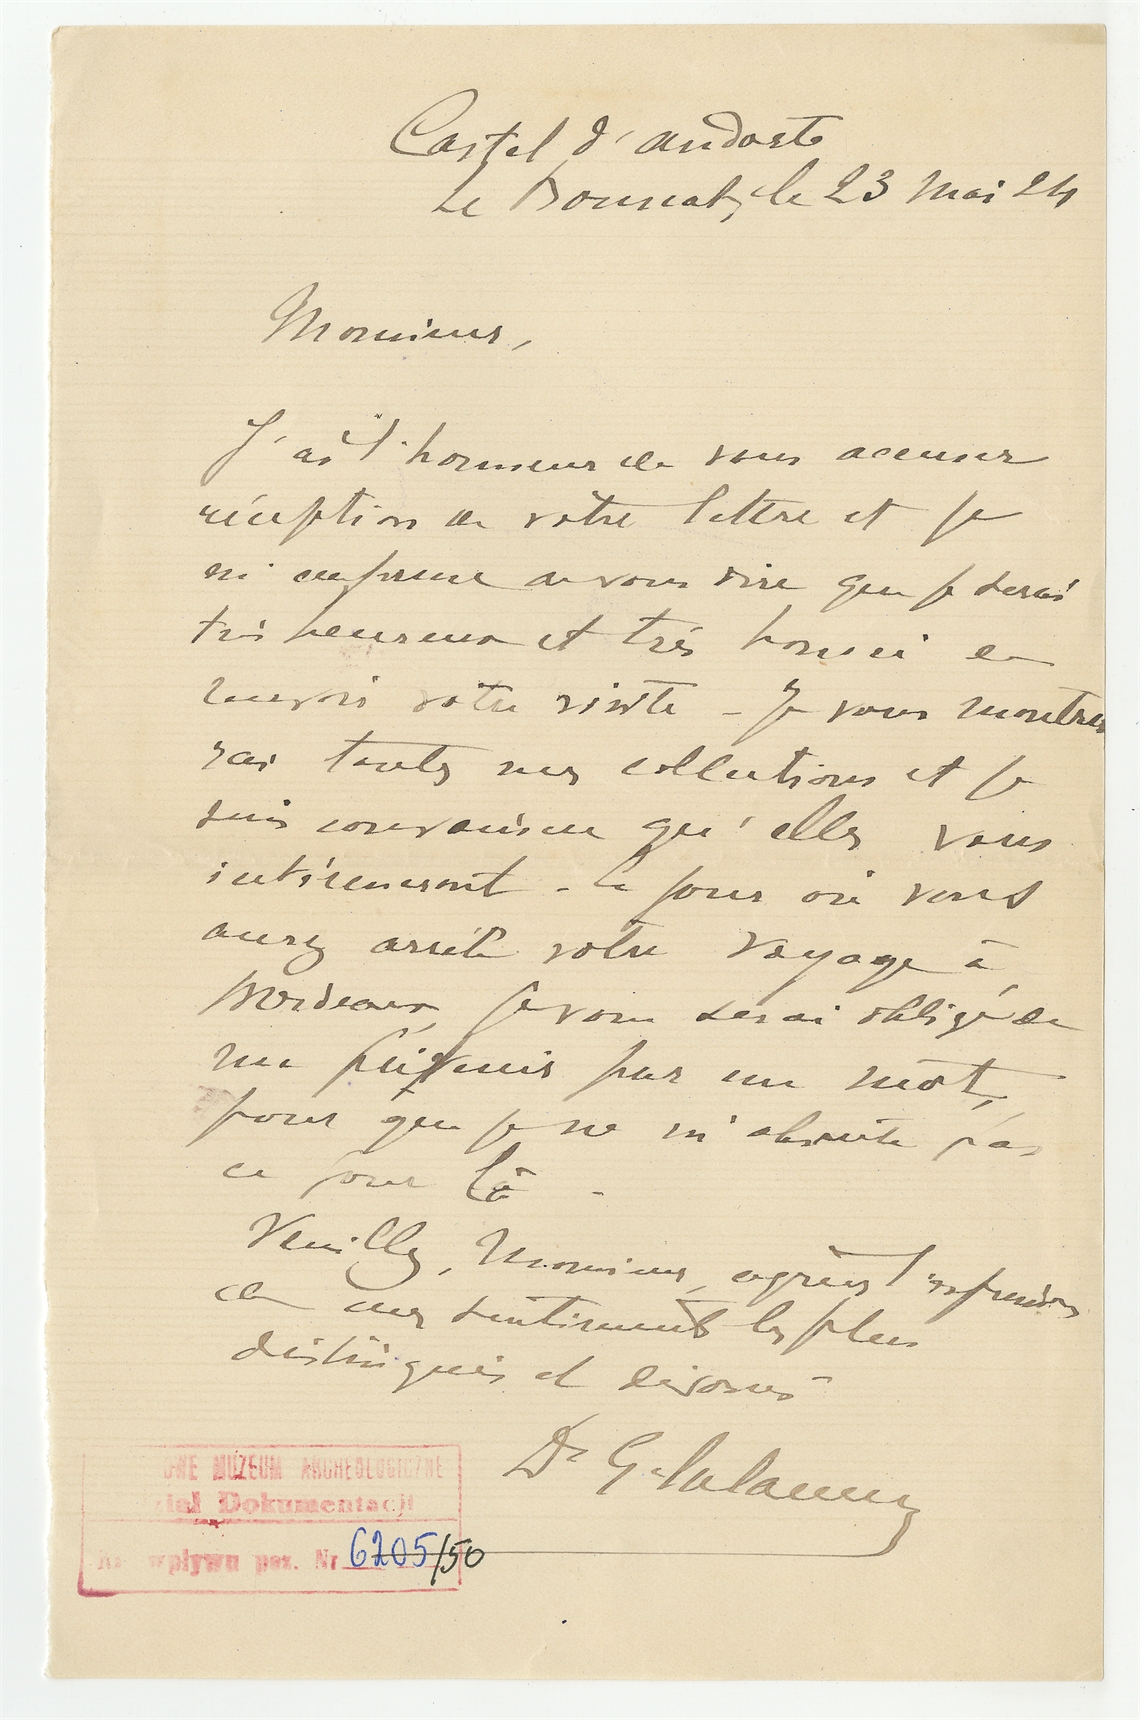 Castel d'andorte
Le Bouscat, le 23 Mai 24
Monsieur,
J'ai l'honneur de vous accuser
réception de votre lettre et je
m'empresse de vous dire que je serai
très heureux et très honoré de
recevoir votre visite - Je vous montre
rai toutes mes collections et je
suis convaincu qu'elles vous
intéresseront - Le jour où vous
aurez arrêté votre voyage à
Bordeaux, je vous serai obligé de
me prévenir par un mot,
pour que je ne m'absente pas
ce jour là -
Veuillez, Monsieur, agréer l'expression
de mes sentiments les plus
distingués et dévoués
Dr G. Lalanne
MUZEUM ARCHEOLOGICZNE
Dział Dokumentacji
wpływu poz. Nr 6205/50